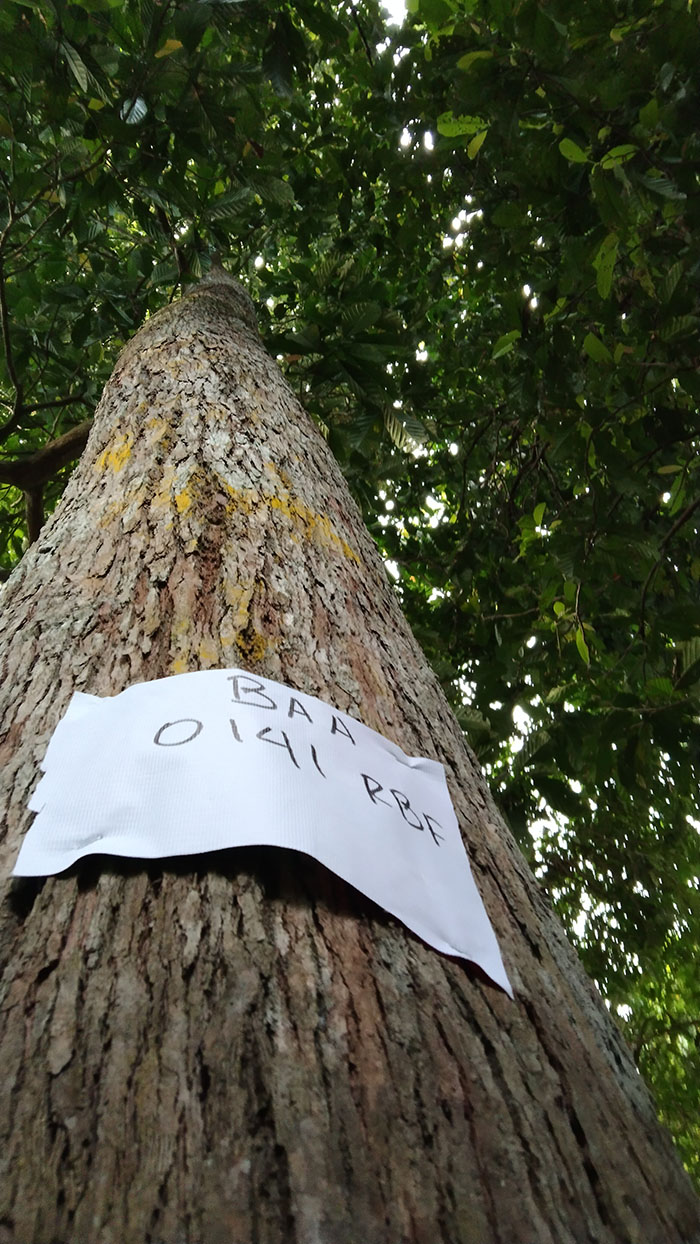 BAA
0141 RBF